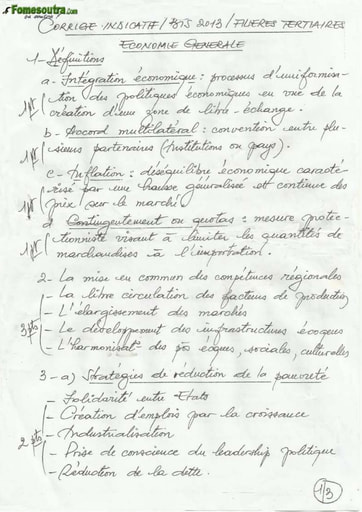 Fomesoutra.com
CORRIGE INDICATIF / BTS 2013 / FILIERES TERTIAIRES
ECONOMIE GENERALE
1- Définitions
a- Intégration économique : processus d'uniformisa-
1pt tion des politiques économiques en vue de la
création d'une zone de libre-échange.
b- Accord multilatéral : convention entre plu-
1pt sieurs partenaires (Institutions ou pays).
c- Inflation : déséquilibre économique caracté-
1pt risé par une hausse généralisée et continue des
prix sur le marché
d Contingentement ou quotas : mesure protec-
1pt tionniste visant à limiter les quantités de
marchandises à l'importation.
2- La mise en commun des compétences régionales
- La libre circulation des facteurs de production
- L'élargissement des marchés
3pts - Le développement des infrastructures écoques
- L'harmonisat° des pos éques, sociales, culturelles
3- a) Stratégies de réduction de la pauvreté
- Solidarité entre Etats
- Création d'emplois par la croissance
2pts - Industrialisation
- Prise de conscience du leadership politique
- Réduction de la dette.
1/3